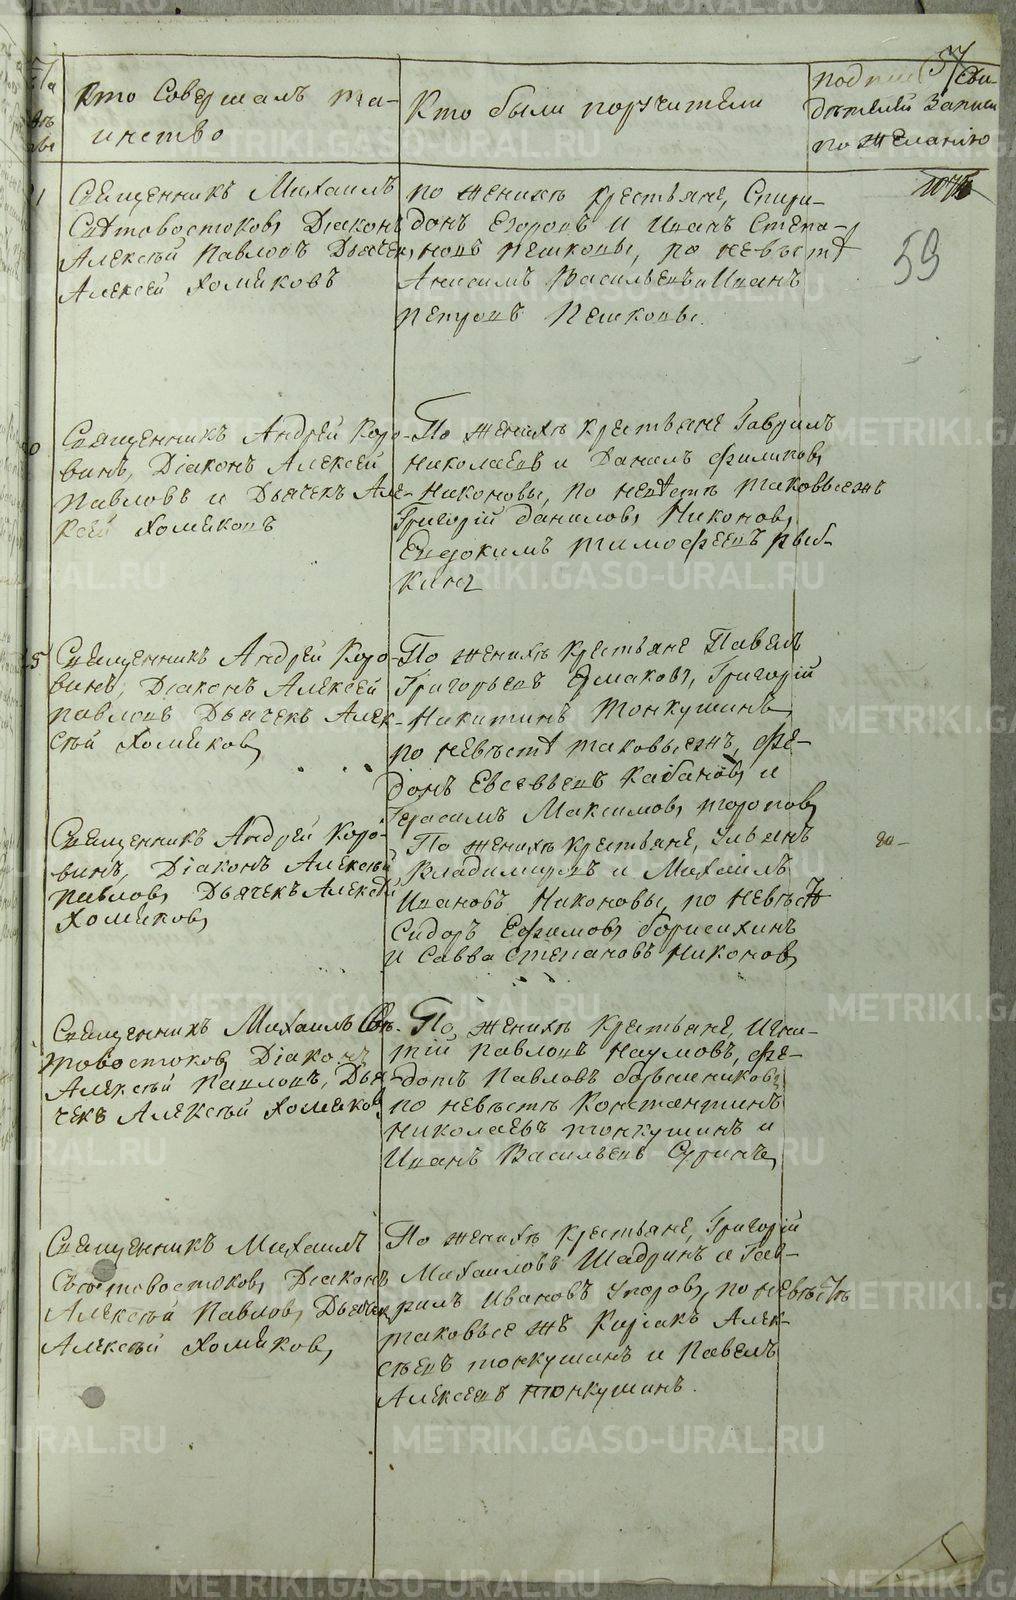 57
Кто Совершалъ та-
инство
Кто были поручители
подпись Сви-
дѣтелей Записи
по желанію
59
Священникъ Михаилъ
Свѣтовостоковъ Діаконъ
Алексѣй Павловъ Дьячекъ
Алексей Хомяковъ
по женихѣ крестьяне, Спири-
донъ Егоровъ и Иванъ Степа-
новъ Пешковы, по невѣстѣ
Анисимъ Васильевъ и Иванъ
Петровъ Пешковы.
Священникъ Андрей Коро-
винъ, Діаконъ Алексей
Павловъ и Дьячекъ Але-
ксей Хомяковъ
По женихѣ крестьяне Гаврилъ
Николаевъ и Данилъ Филиповъ
Никоновы, по невѣстѣ таковые жъ
Григорій Даниловъ Никоновъ,
Евдокимъ Тимофеевъ Рыб-
кинъ
Священникъ Андрей Коро-
винъ, Діаконъ Алексей
Павловъ Дьячекъ Алек-
сѣй Хомяковъ
По женихѣ крестьяне Павелъ
Григорьевъ Ермаковъ, Григорій
Никитинъ Тонкушинъ
по невѣстѣ таковые жъ, Фе-
донъ Евсевьевъ Кабановъ и
Герасимъ Максимовъ Тороповъ
Священникъ Андрей Коро-
винъ, Діаконъ Алексѣй
Павловъ Дьячекъ Алексѣй
Хомяковъ
По женихѣ крестьяне, Ульянъ
Владимировъ и Михаилъ
Ивановъ Никоновы, по невѣстѣ
Сидоръ Ефимовъ Борисихинъ
и Савва Степановъ Никоновъ
Священникъ Михаилъ Свѣ-
товостоковъ Діаконъ
Алексѣй Павловъ, Дья-
чекъ Алексѣй Хомяковъ
По женихѣ крестьяне, Игна-
тій Павловъ Наумовъ, Фе-
дотъ Павловъ Большениковъ
по невѣстѣ Константинъ
Николаевъ Тонкушинъ и
Иванъ Васильевъ Суринъ
Священникъ Михаилъ
Свѣтовостоковъ, Діаконъ
Алексѣй Павловъ, Дьячек
Алексѣй Хомяковъ
По женихѣ крестьяне, Григорій
Михаиловъ Шадринъ и Гав-
рилъ Ивановъ по невѣстѣ
таковые жъ Кирикъ Алек-
сѣевъ Тонкушинъ и Павелъ
Алексеевъ Тонкушинъ.
METRIKI.GASO-URAL.RU